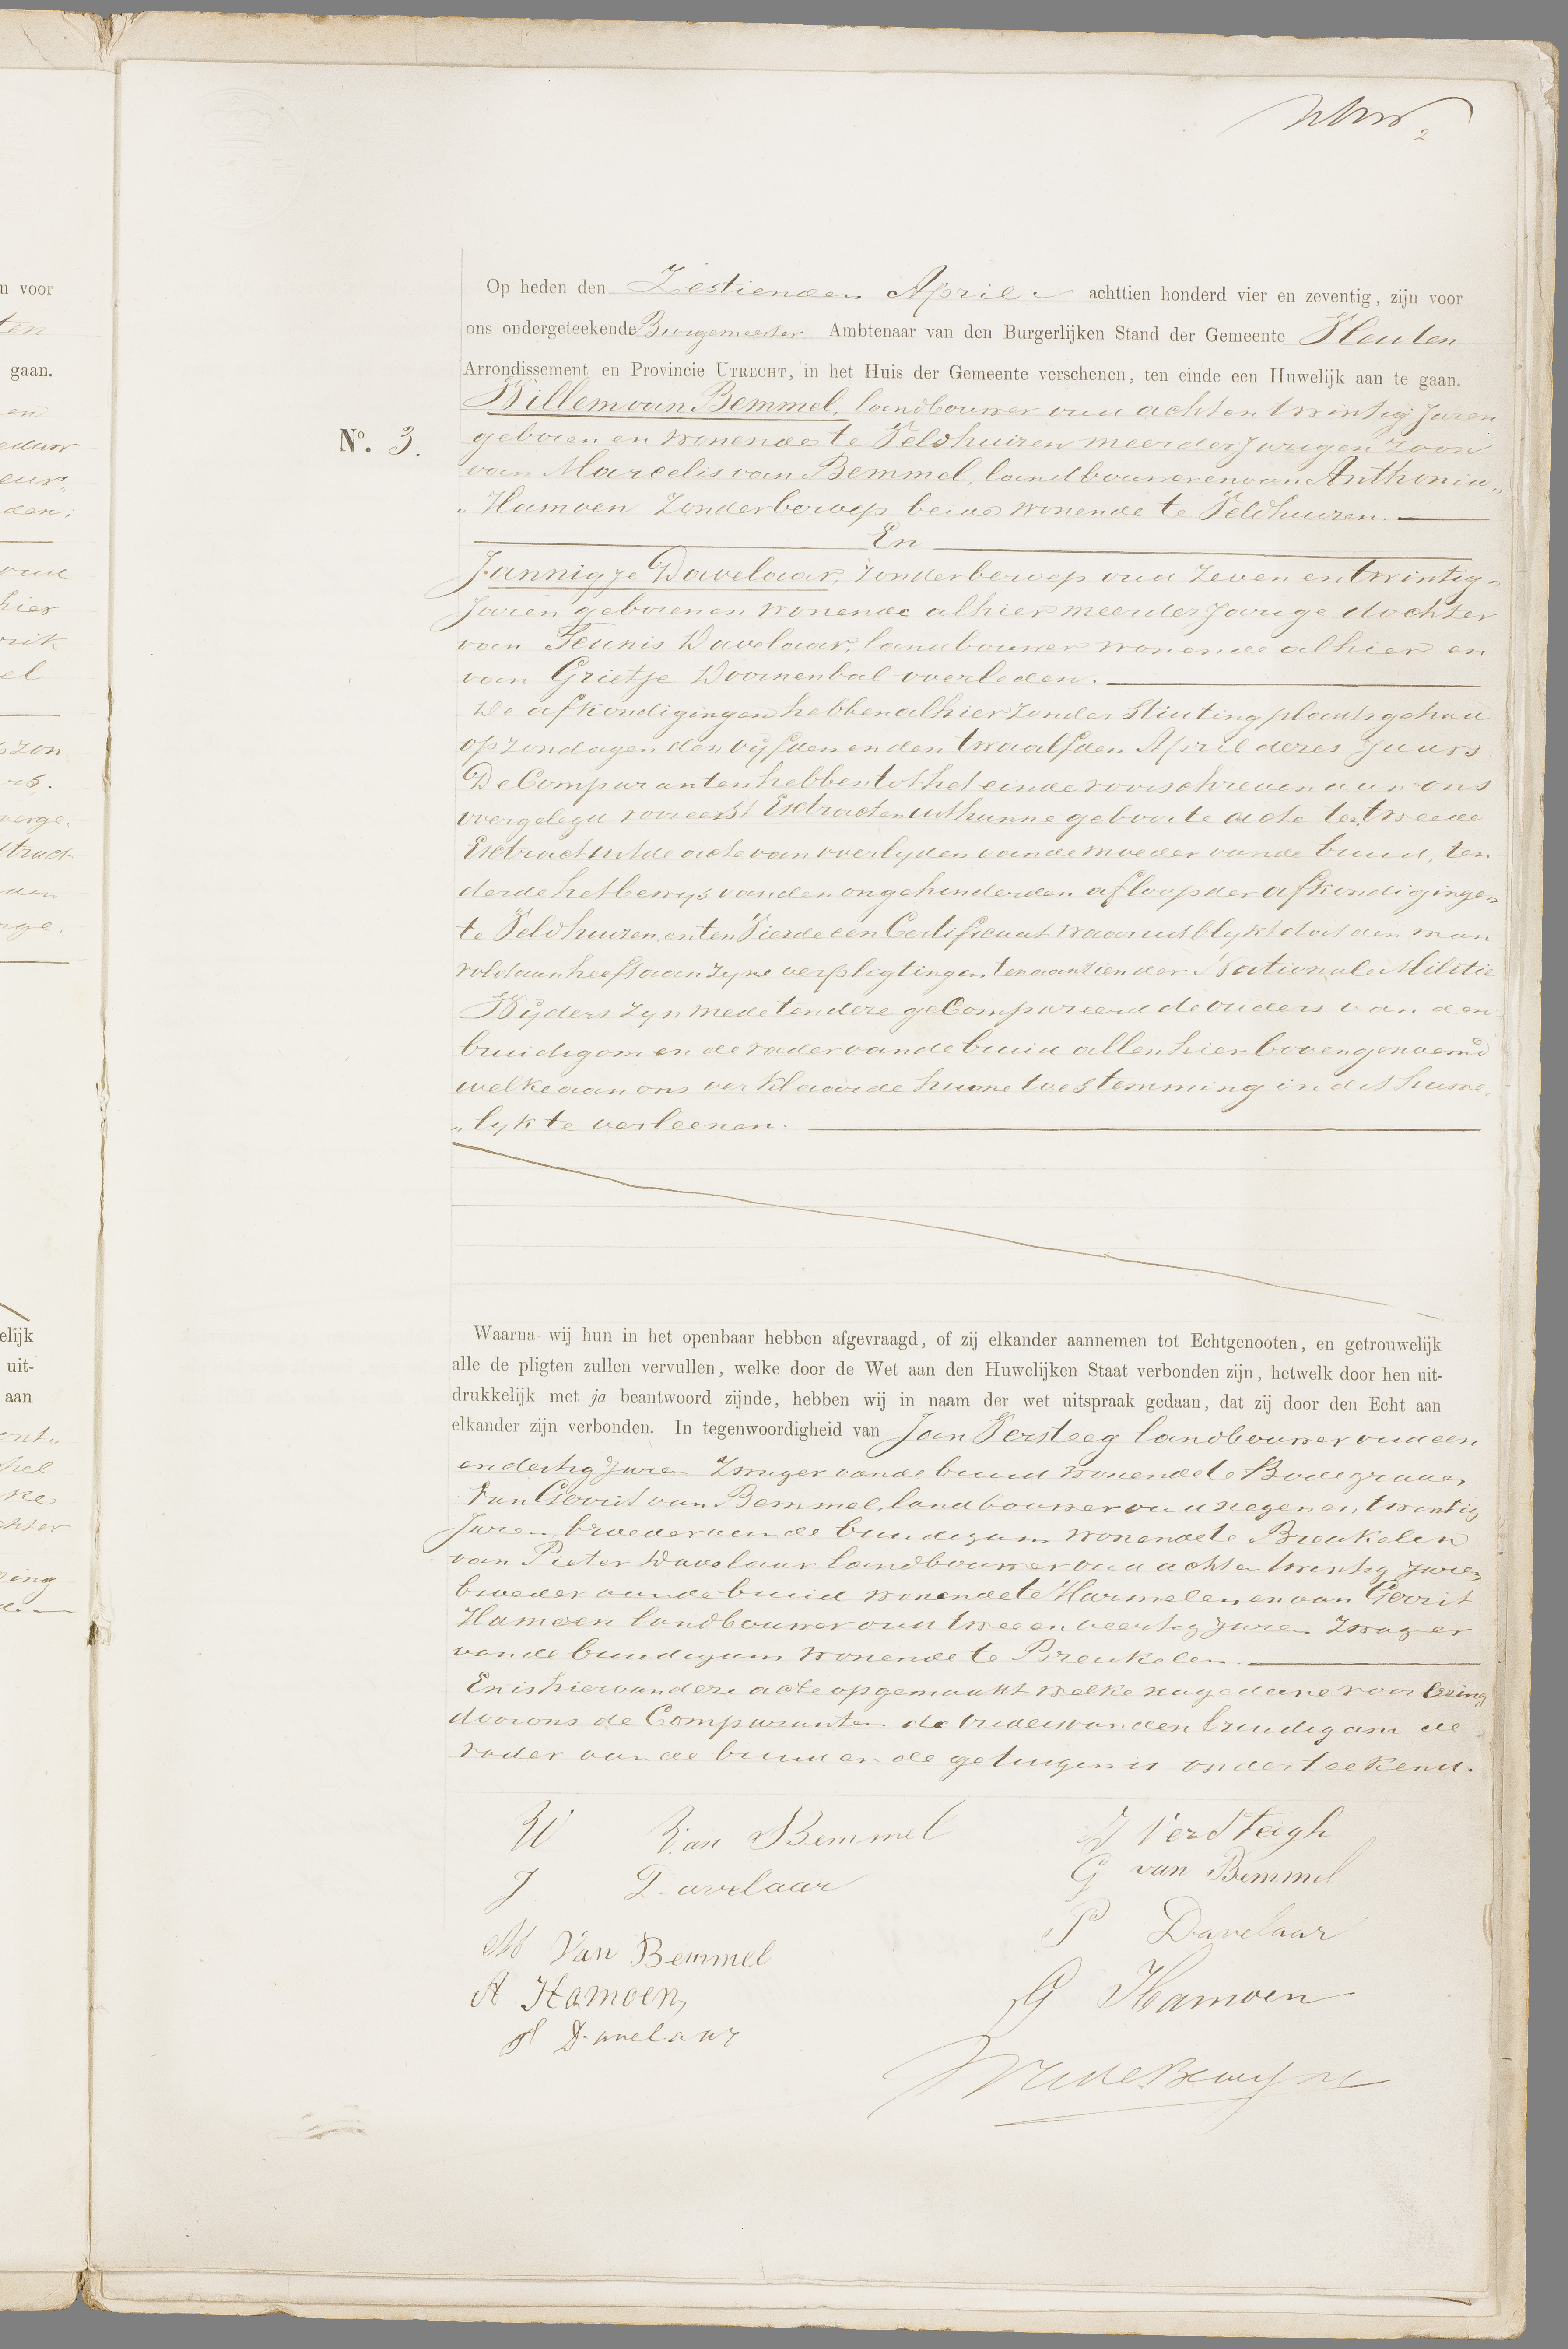 2
Op heden den Zestienden April achttien honderd vier en zeventig, zijn voor
ons ondergeteekende Burgemeester Ambtenaar van den Burgerlijken Stand der Gemeente Houten
Arrondissement en Provincie UTRECHT, in het Huis der Gemeente verschenen, ten einde een Huwelijk aan te gaan.
Willem van Bemmel, landbouwer oud acht en twintig Jaren
No. 3.
geboren en wonende te Veldhuizen meerderjarigen zoon
van Marcelis van Bemmel, landbouwer en van Anthonia„
„Hamoen zonder beroep beide wonende te Veldhuizen.
En
Jannigje Davelaar, zonder beroep oud zeven en twintig„
Jaren geboren en wonende alhier meerderjarige dochter
van Teunis Davelaar, landbouwer wonende alhier en
van Grietje Doornenbal overleden.
De afkondigingen hebben alhier zonder stuiting plaats gehad
op zondagen den vijfden en den twaalfden April dezes Jaars.
De Comparanten hebben tot het einde voorschreven aan ons
overgelegd vooreerst Extracten uit hunne geboorte acte ten tweede
Extract uit de acte van overlyden van de moeder van de bruid, ten
derde het bewys van den ongehinderden afloop der afkondigingen
te Veldhuizen, en ten Vierde een Certificaat waaruit blykt dat den man
voldaan heeft aan zyne verpligtingen ten aanzien der Nationale Militie
Wyders zyn mede ten deze geCompareerd de ouders van den
bruidigom en de vader van de bruid allen hier boven genoemd
welke aan ons verklaarde hunne toestemming in dit huwe„
„lyk te verleenen.
Waarna wij hun in het openbaar hebben afgevraagd, of zij elkander aannemen tot Echtgenooten, en getrouwelijk
alle de pligten zullen vervullen, welke door de Wet aan den Huwelijken Staat verbonden zijn, hetwelk door hen uit-
drukkelijk met ja beantwoord zijnde, hebben wij in naam der wet uitspraak gedaan, dat zij door den Echt aan
elkander zijn verbonden. In tegenwoordigheid van Jan Versteeg landbouwer oud een
en dertig Jaren zwager van de bruid wonende te Bodegraven
van Gerrit van Bemmel, landbouwer oud negen en twintig
Jaren, broeder van de bruidigam wonende te Breukelen
van Pieter Davelaar landbouwer oud acht en twintig Jaren
broeder van de bruid wonende te Harmelen en van Gerrit
Hamoen landbouwer oud twee en veertig Jaren zwager
van de bruidigam wonende te Breukelen.
En is hiervan deze acte opgemaakt welke na gedane voorlezing
door ons de Comparanten de ouders van den bruidigam de
vader van de bruid en de getuigen is onderteekend.
W Van Bemmel
J Versteegh
J Davelaar
G van Bemmel
P Davelaar
M Van Bemmel
A Hamoen
G Hamoen
T Davelaar
n voor
gaan.
elijk
uit-
aan